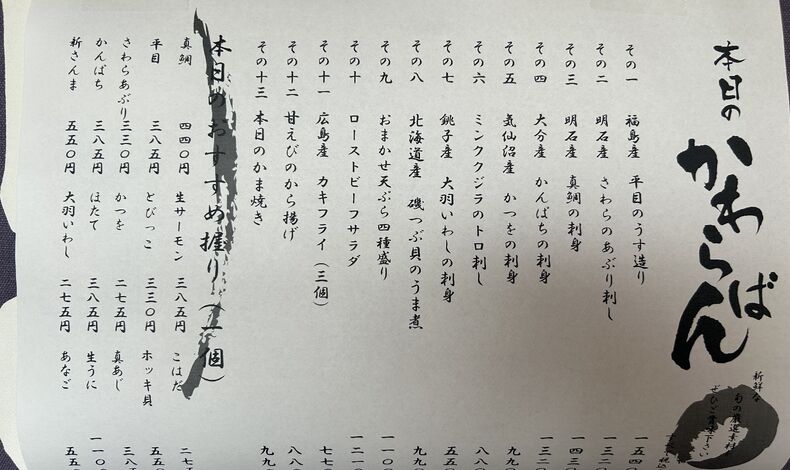 本日の
かわらばん
新鮮な
旬の厳選素材
ぜひご賞味下さい
その一 福島産 平目のうす造り 一五四
その二 明石産 さわらのあぶり刺し 一三二
その三 明石産 真鯛の刺身 一四三
その四 大分産 かんぱちの刺身 一三二
その五 気仙沼産 かつをの刺身 九九
その六 ミンククジラのトロ刺し 八八〇
その七 銚子産 大羽いわしの刺身 五五
その八 北海道産 磯つぶ貝のうま煮 九九
その九 おまかせ天ぷら四種盛り 一一〇
その十 ローストビーフサラダ 一二一
その十一 広島産 カキフライ(三個) 七七
その十二 甘えびのから揚げ 八八
その十三 本日のかま焼き 九九
本日のおすすめ握り(一個)
真鯛 四四〇円 生サーモン 三八五円 こはだ 二七
平目 三八五円 とびっこ 三三〇円 ホッキ貝 五五
さわらあぶり 三三〇円 かつを 二七五円 真あじ 三八
かんぱち 三八五円 ほたて 三八五円 生うに 一一〇
新さんま 五五〇円 大羽いわし 二七五円 あなご 五五